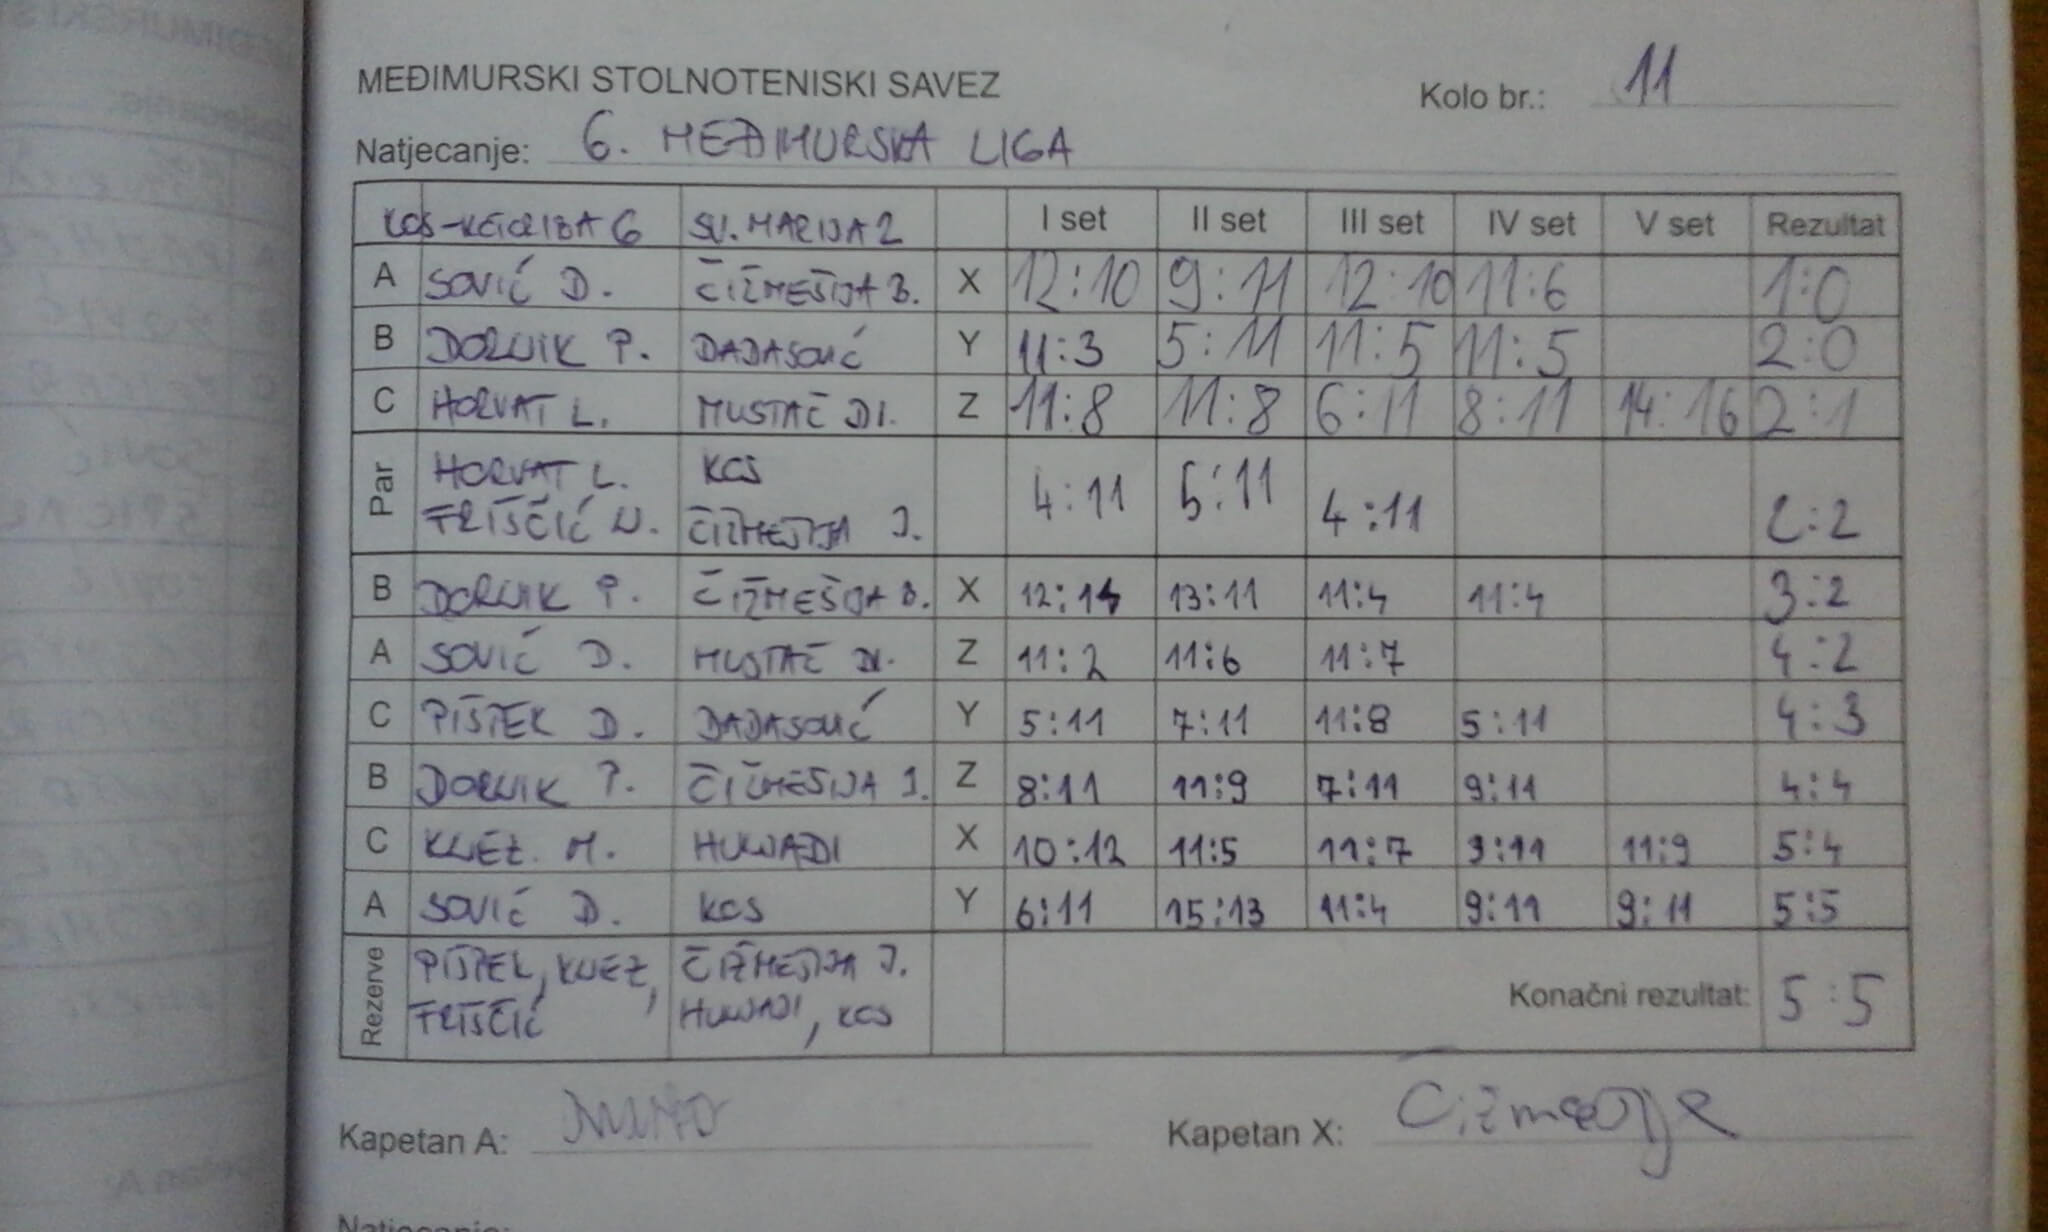 MEĐIMURSKI STOLNOTENISKI SAVEZ Kolo br.: 11
Natjecanje: 6. MEĐIMURSKA LIGA
KOS-KOTORIBA 6 SV. MARIJA 2 I set II set III set IV set V set Rezultat
A SOVIĆ D. ČIŽMEŠIJA B. X 12:10 9:11 12:10 11:6 1:0
B DORNIK P. DADASOVIĆ Y 11:3 5:11 11:5 11:5 2:0
C HORVAT L. MUSTAČ DI. Z 11:8 11:8 6:11 8:11 14:16 2:1
Par HORVAT L. KOS 4:11 5:11 4:11 2:2
FRIŠČIĆ N. ČIŽMEŠIJA J.
B DORNIK P. ČIŽMEŠIJA B. X 12:14 13:11 11:4 11:4 3:2
A SOVIĆ D. MUSTAČ DI. Z 11:2 11:6 11:7 4:2
C PIŠPEK D. DADASOVIĆ Y 5:11 7:11 11:8 5:11 4:3
B DORNIK P. ČIŽMEŠIJA J. Z 8:11 11:9 7:11 9:11 4:4
C KNEZ. M. HUNJADI X 10:12 11:5 11:7 9:11 11:9 5:4
A SOVIĆ D. KOS Y 6:11 15:13 11:4 9:11 9:11 5:5
Rezerve PIŠPEK, KNEZ, ČIŽMEŠIJA J.
FRIŠČIĆ HUNJADI, KOS
Konačni rezultat: 5:5
Kapetan A: Kapetan X: Čižmešija
Natjecanje: